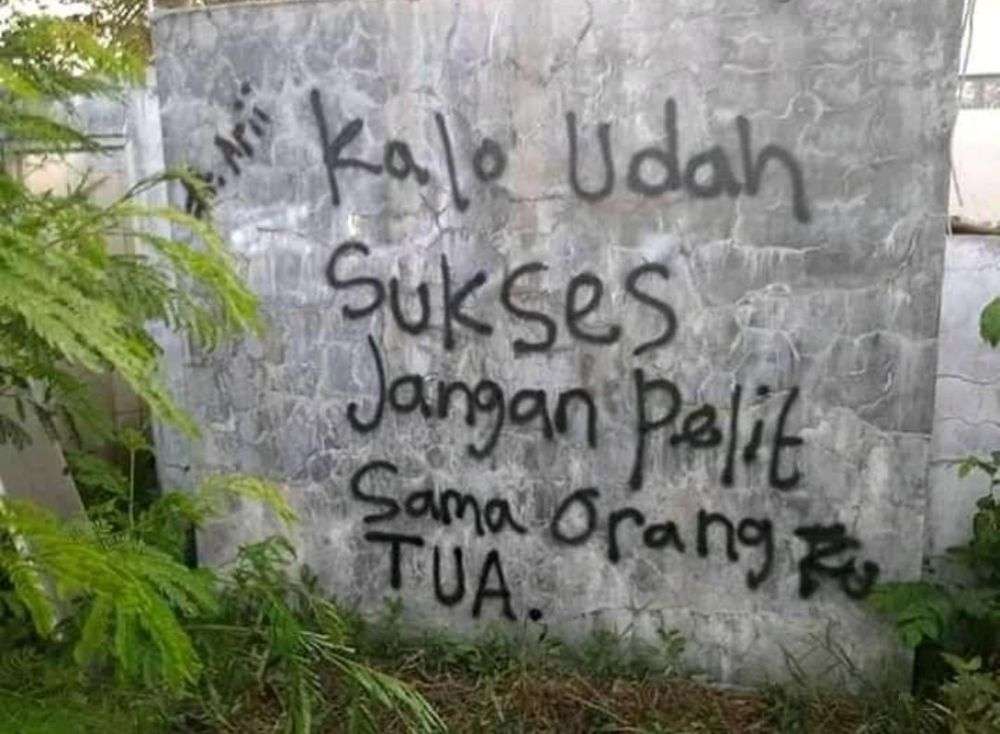 Arii
Kalo Udah
Sukses
Jangan Pelit
Sama Orang
TUA.